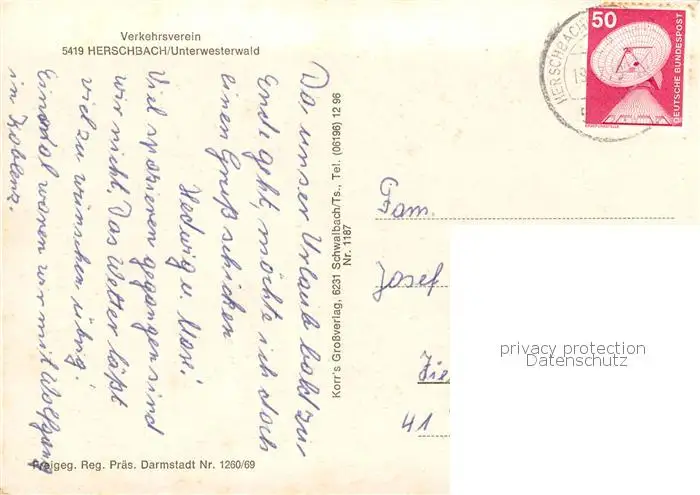 Verkehrsverein
5419 HERSCHBACH/Unterwesterwald
Da unser Urlaub bald zur
Ende geht, möchte ich doch
einen Gruß schicken
Hedwig u.
Viel spazieren gegangen sind
wir nicht. Das Wetter läßt
viel zu wünschen übrig!
Einmal waren wir mit Wolfgang
in Koblenz.
Freigeg. Reg. Präs. Darmstadt Nr. 1260/69
Korr's Großverlag, 6231 Schwalbach/Ts., Tel. (06196) 12 96
Nr. 1187
HERSCHBACH
50
DEUTSCHE BUNDESPOST
Fam.
Josef
41
privacy protection
Datenschutz